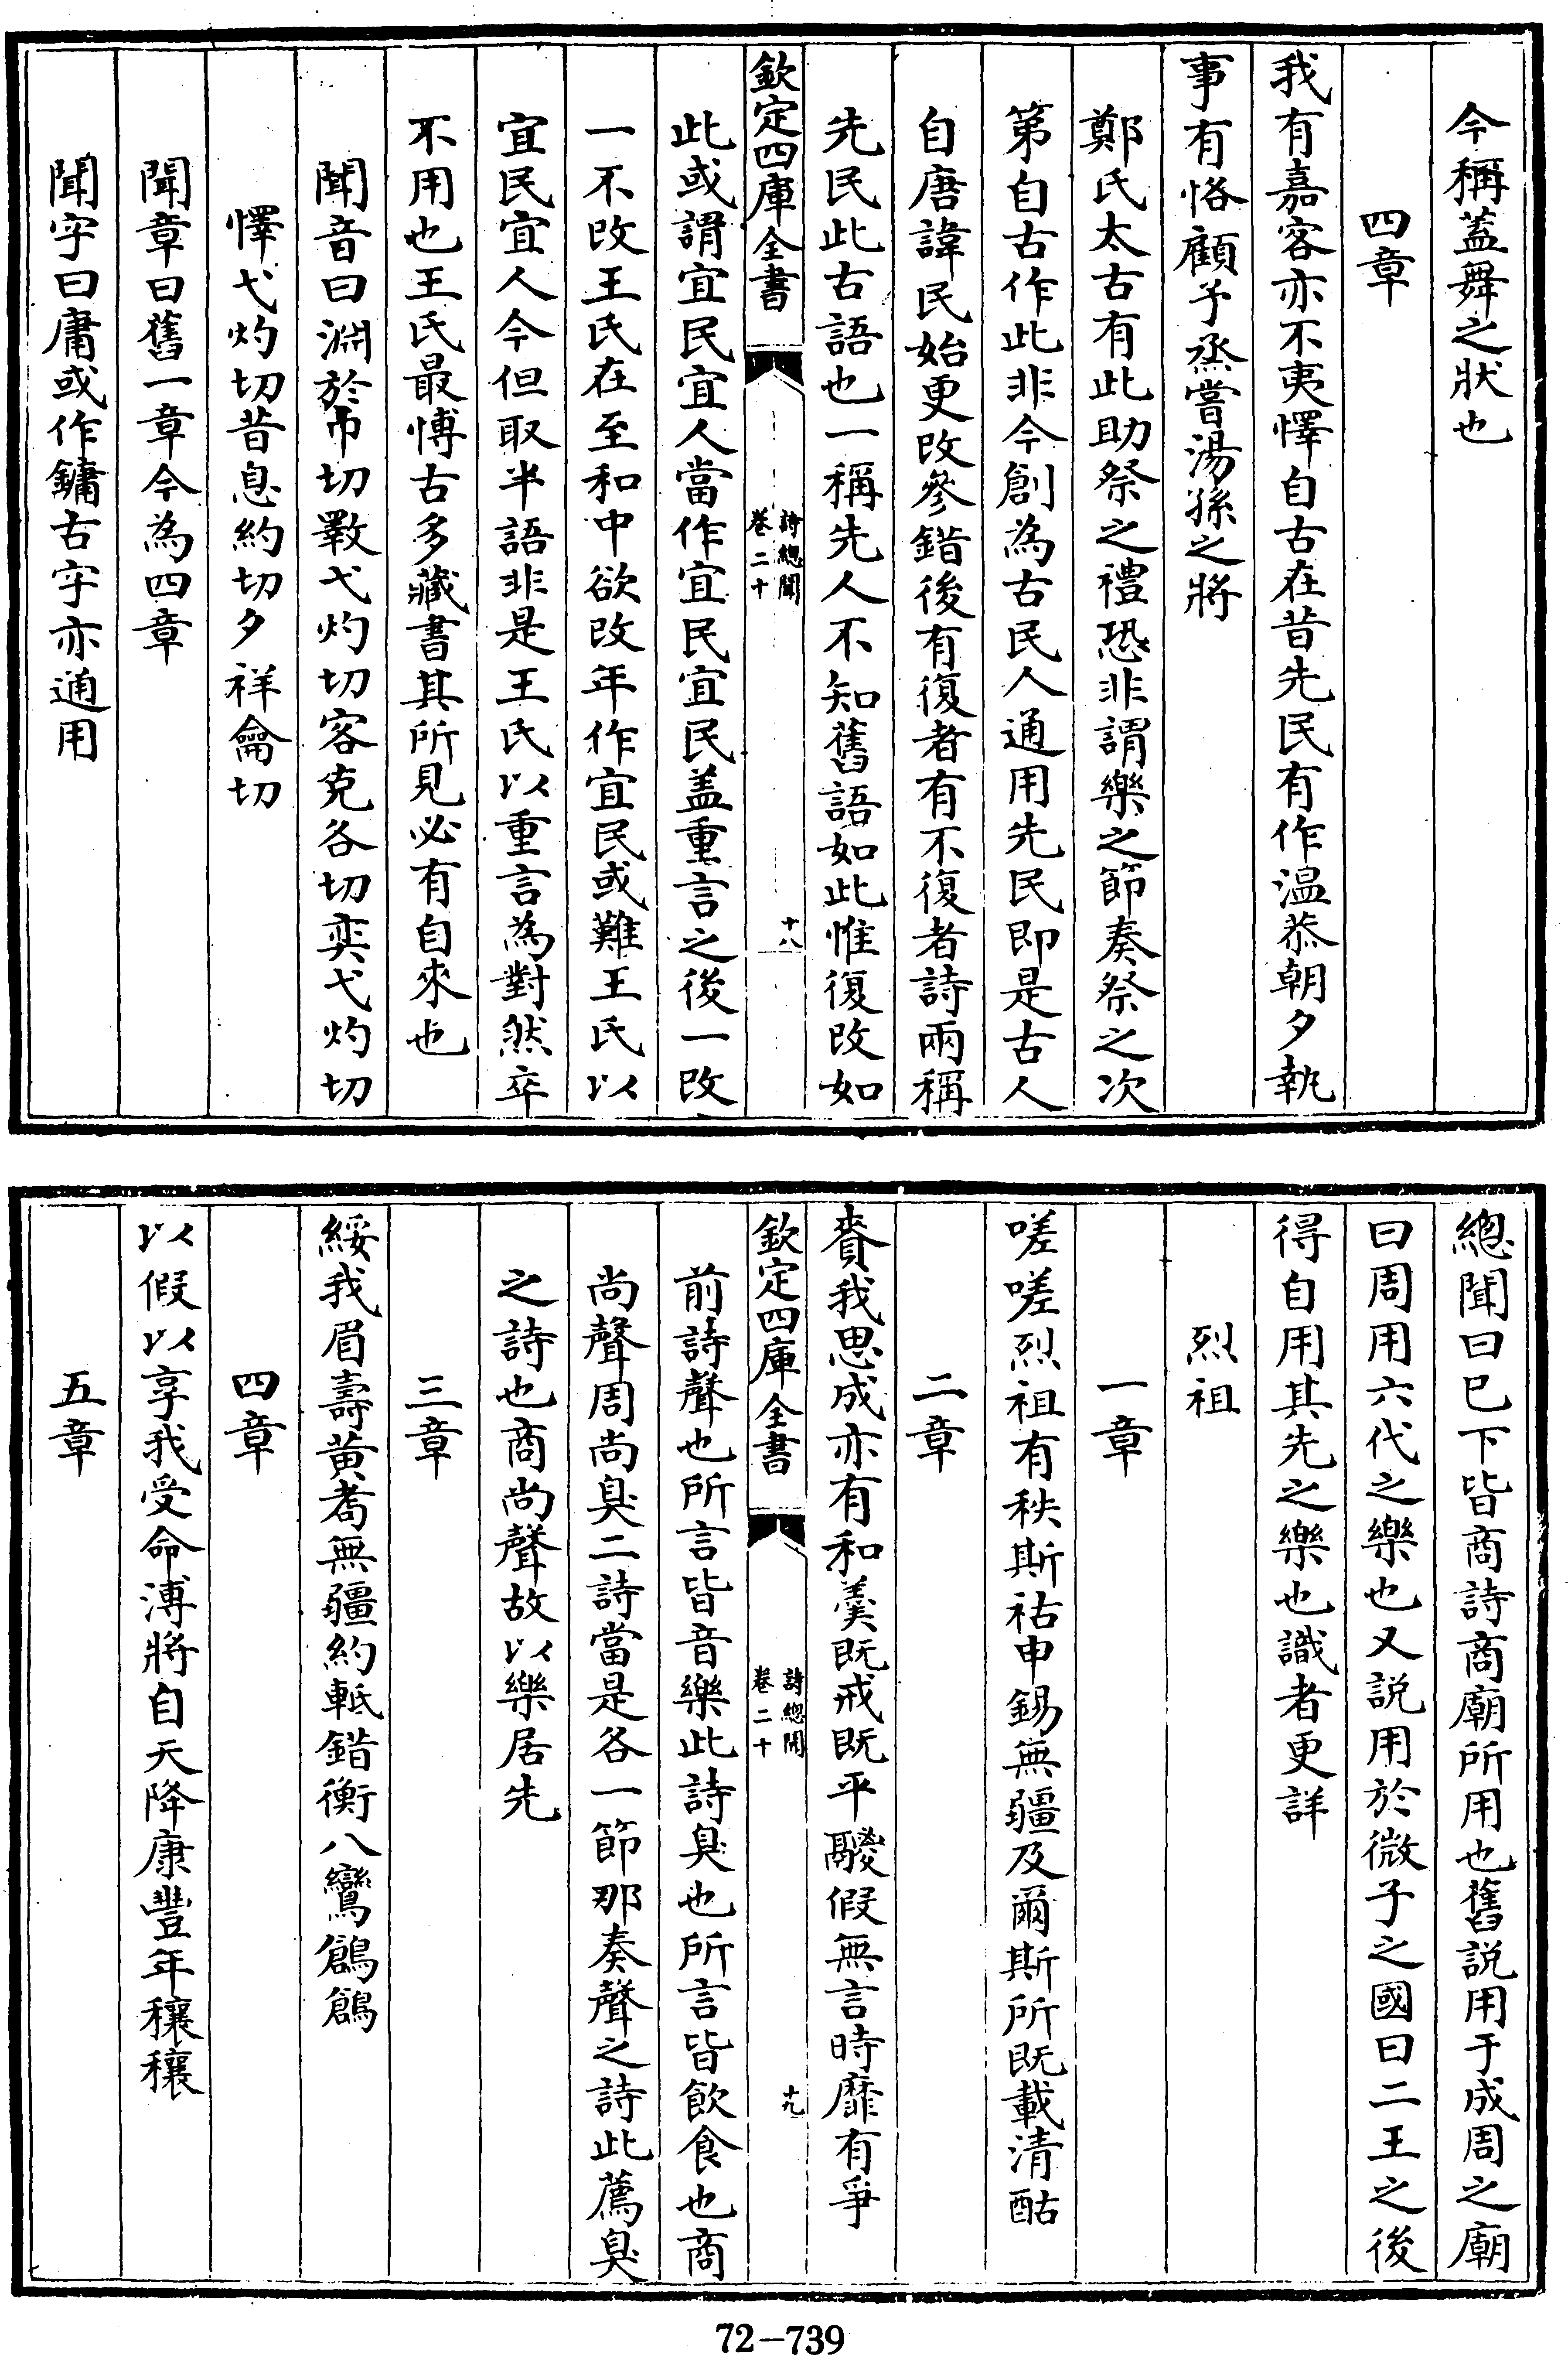 今稱蓋舞之狀也
四章
我有嘉客亦不夷懌自古在昔先民有作温恭朝夕執
事有恪顧予烝嘗湯孫之將
鄭氏太古有此助祭之禮恐非謂樂之節奏祭之次
第自古作此非今創為古民人通用先民即是古人
自唐諱民始更改參錯後有復者有不復者詩兩稱
先民此古語也一稱先人不知舊語如此惟復改如
欽定四庫全書
詩總聞
卷二十
十八
此或謂宜民宜人當作宜民宜民盖重言之後一改
一不改王氏在至和中欲改年作宜民或難王氏以
宜民宜人今但取半語非是王氏以重言為對然卒
不用也王氏最博古多藏書其所見必有自來也
聞音曰淵於巾切斁弋灼切客克各切奕弋灼切
懌弋灼切昔息約切夕祥龠切
聞章曰舊一章今為四章
聞字曰庸或作鏞古字亦通用
總聞曰巳下皆商詩商廟所用也舊説用于成周之廟
曰周用六代之樂也又説用於微子之國曰二王之後
得自用其先之樂也識者更詳
烈祖
一章
嗟嗟烈祖有秩斯祜申錫無疆及爾斯所既載清酤
二章
賚我思成亦有和羮既戒既平鬷假無言時靡有爭
欽定四庫全書
詩總聞
卷二十
十九
前詩聲也所言皆音樂此詩臭也所言皆飲食也商
尚聲周尚臭二詩當是各一節那奏聲之詩此薦臭
之詩也商尚聲故以樂居先
三章
綏我眉壽黄耇無疆約軧錯衡八鸞鶬鶬
四章
以假以享我受命溥將自天降康豐年穰穰
五章
72-739